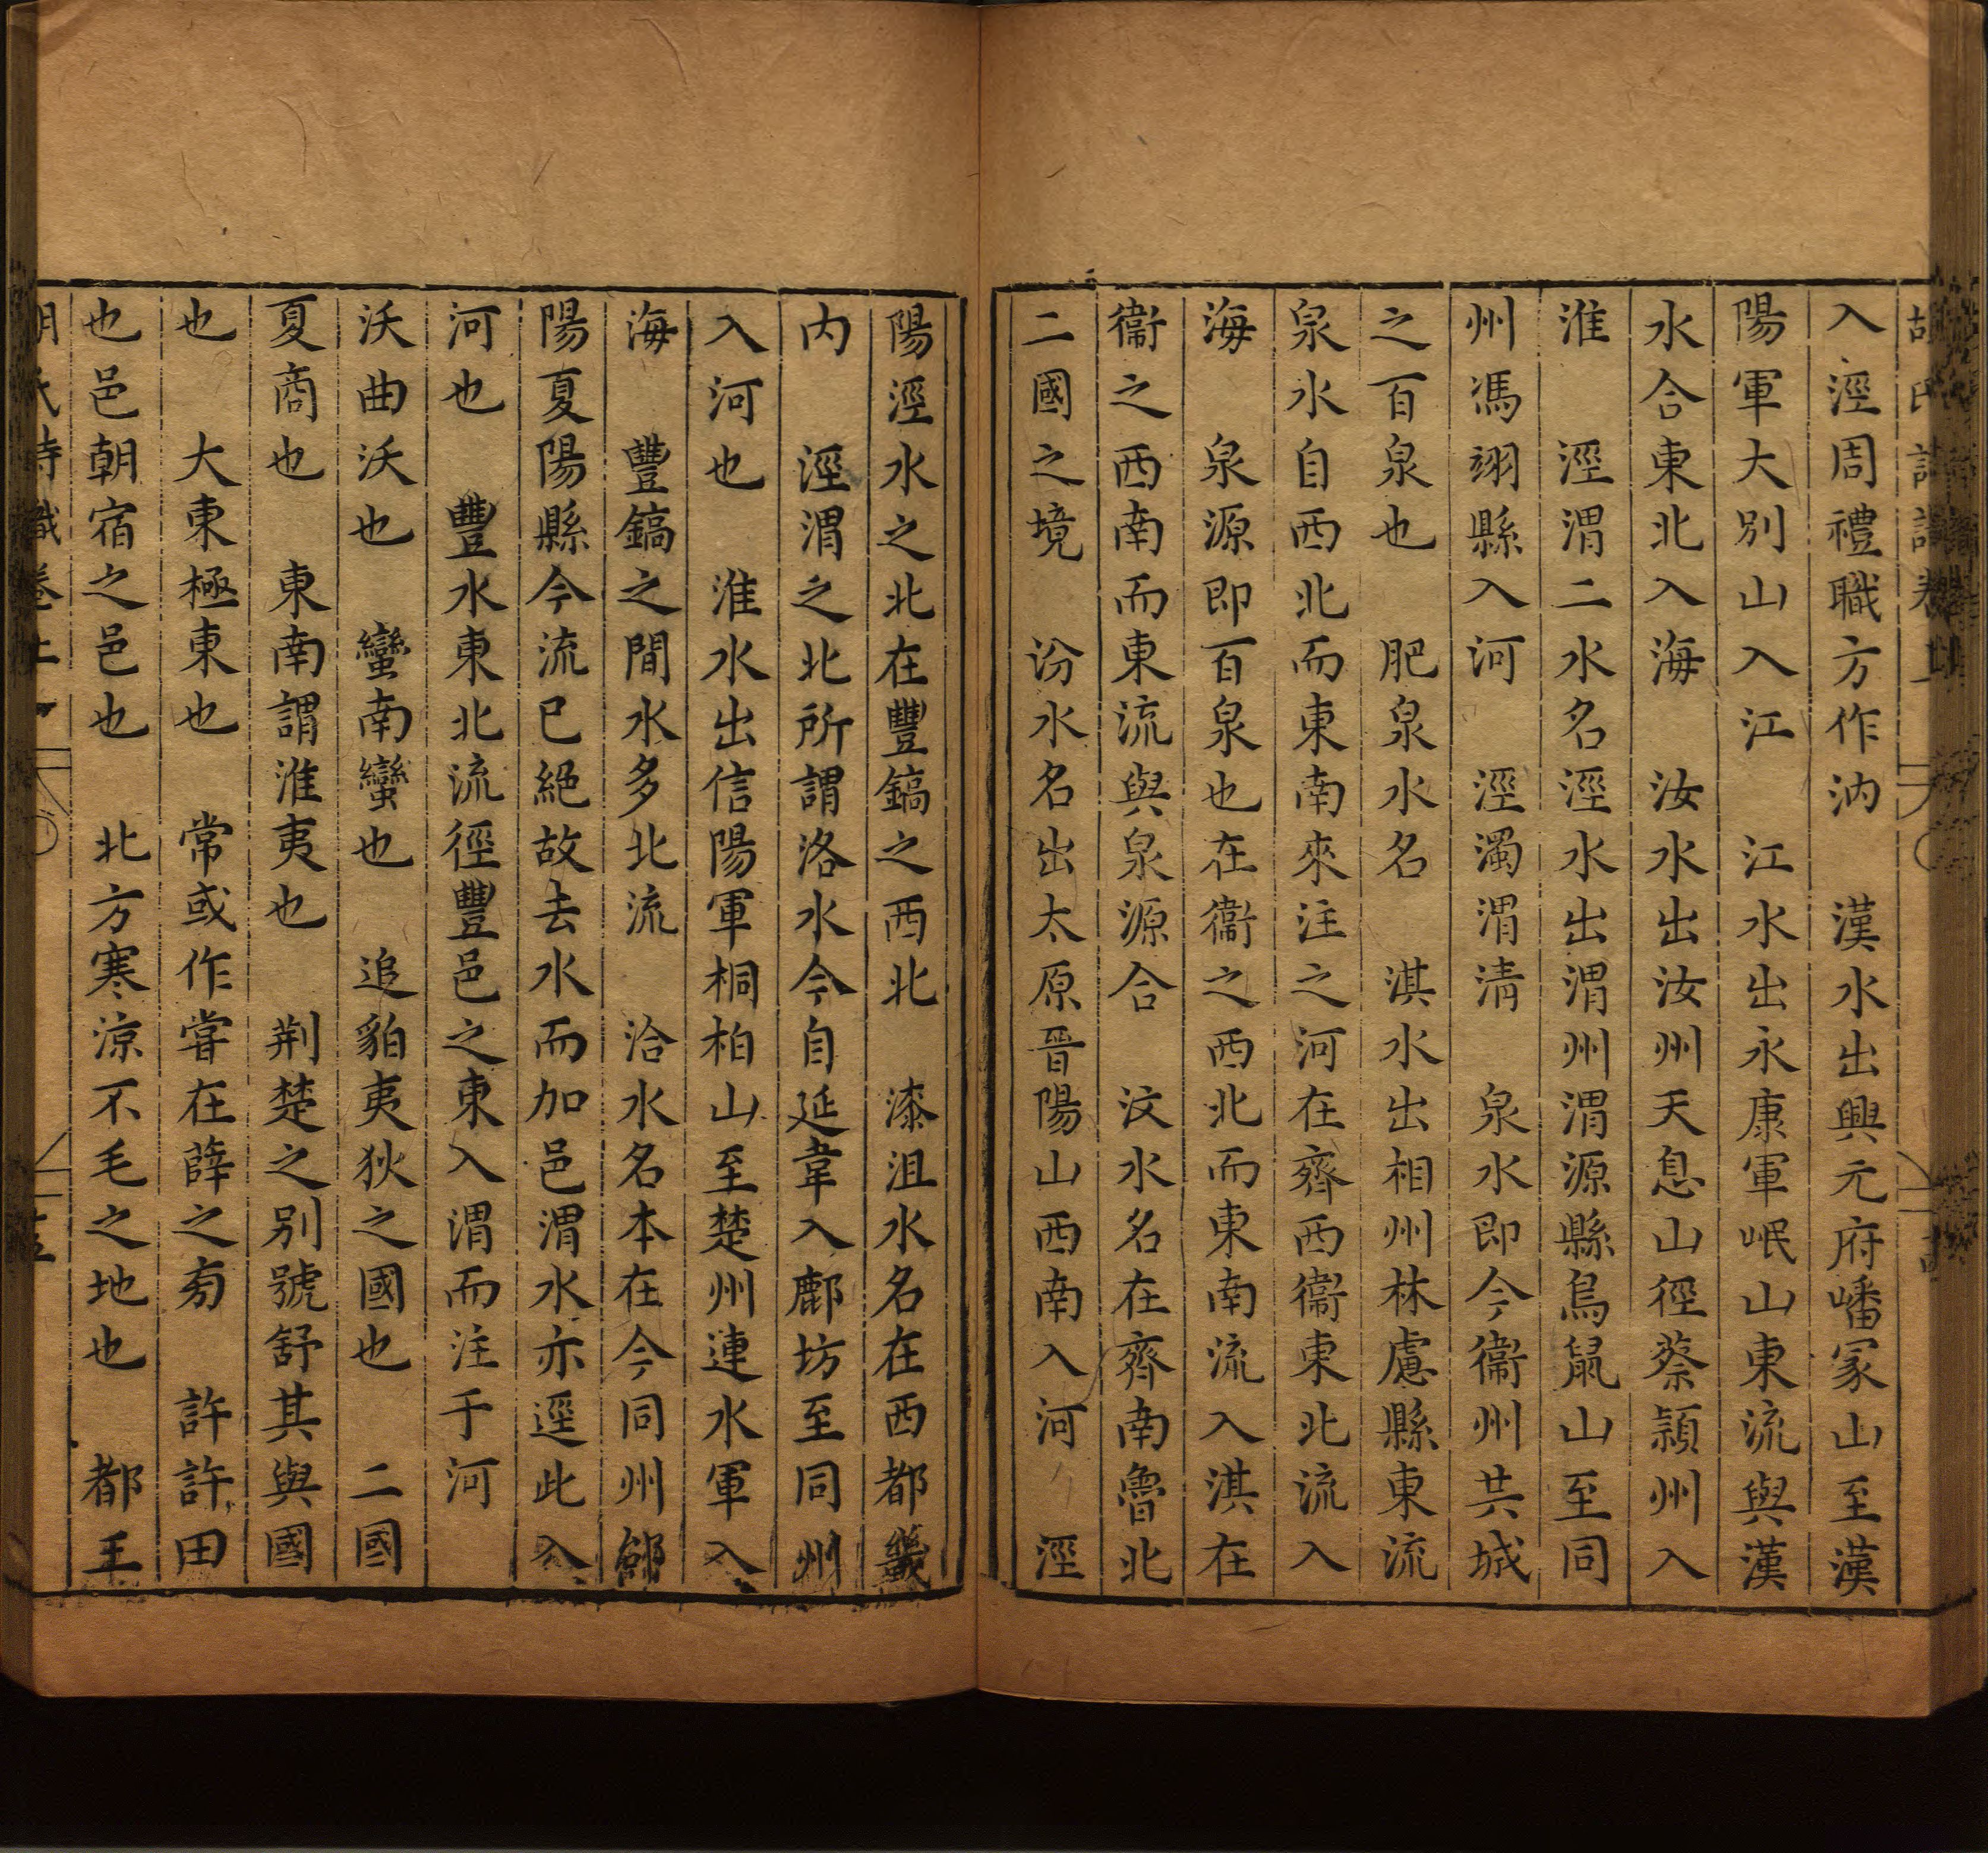 入涇周禮職方作汭　漢水出興元府嶓冡山至漢
陽軍大別山入江　江水出永康軍岷山東流與漢
水合東北入海　汝水出汝州天息山徑蔡潁州入
淮　涇渭二水名涇水出渭州渭源縣鳥鼠山至同
州馮翊縣入河　涇濁渭清　泉水即今衞州共城
之百泉也　肥泉水名　淇水出相州林慮縣東流
泉水自西北而東南來注之河在齊西衞東北流入
海　泉源即百泉也在衞之西北而東南流入淇在
衞之西南而東流與泉源合　汶水名在齊南魯北
二國之境　汾水名出太原晉陽山西南入河　涇
陽涇水之北在豐鎬之西北　漆沮水名在西都畿
內　涇渭之北所謂洛水今自延韋入鄜坊至同州
入河也　淮水出信陽軍桐柏山至楚州連水軍入
海　豐鎬之間水多北流　洽水名本在今同州郃
陽夏陽縣今流已絕故去水而加邑渭水亦逕此入
河也　豐水東北流徑豐邑之東入渭而注于河
沃曲沃也　蠻南蠻也　追貊夷狄之國也　二國
夏商也　東南謂淮夷也　荆楚之别號舒其與國
也　大東極東也　常或作甞在薛之旁　許許田
也邑朝宿之邑也　北方寒涼不毛之地也　都王